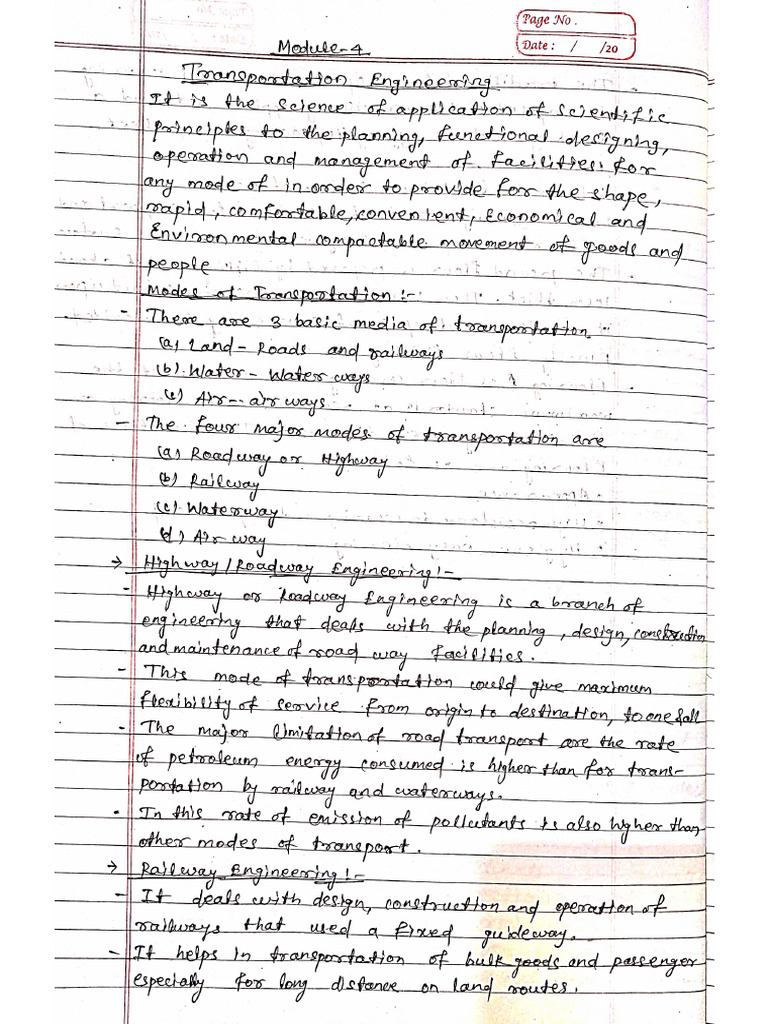 Page No.
Date: / /20
Module-4
Transportation Engineering
It is the science of application of scientific
principles to the planning, functional designing,
operation and management of facilities for
any mode of in order to provide for the shape,
rapid, comfortable, convenient, Economical and
Environmental compactable movement of goods and
people
Modes of Transportation :-
- There are 3 basic media of transportation
(a) Land - Roads and railways
(b) Water - Water ways
(c) Air - air ways
- The four major modes of transportation are
(a) Roadway or Highway
(b) Railway
(c) Waterway
(d) Air way
→ Highway/Roadway Engineering :-
- Highway or Roadway Engineering is a branch of
engineering that deals with the planning, design, construction
and maintenance of road way facilities.
- This mode of transportation could give maximum
flexibility of service from origin to destination, to one & all
- The major limitation of road transport are the rate
of petroleum energy consumed is higher than for trans-
portation by railway and waterways.
- In this rate of emission of pollutants is also higher than
other modes of transport.
→ Railway Engineering :-
- It deals with design, construction and operation of
railways that used a fixed guideway.
- It helps in transportation of bulk goods and passenger
especially for long distance on land routes.